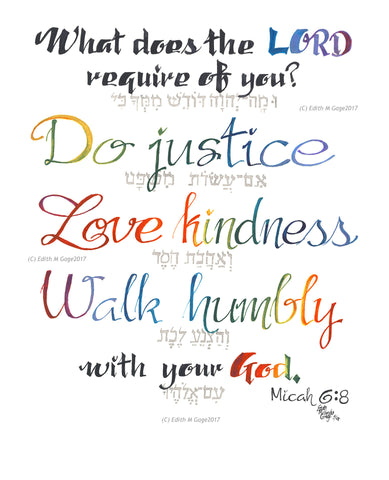 What does the LORD
require of you?
וּמָה־יְהוָה דּוֹרֵשׁ מִמְּךָ כִּי
(C) Edith M Gage2017
Do justice
אִם־עֲשׂוֹת מִשְׁפָּט
Love kindness
(C) Edith M Gage2017
וְאַהֲבַת חֶסֶד
Walk humbly
וְהַצְנֵעַ לֶכֶת
with your God.
עִם־אֱלֹהֶיךָ
Micah 6:8
(C) Edith M Gage2017